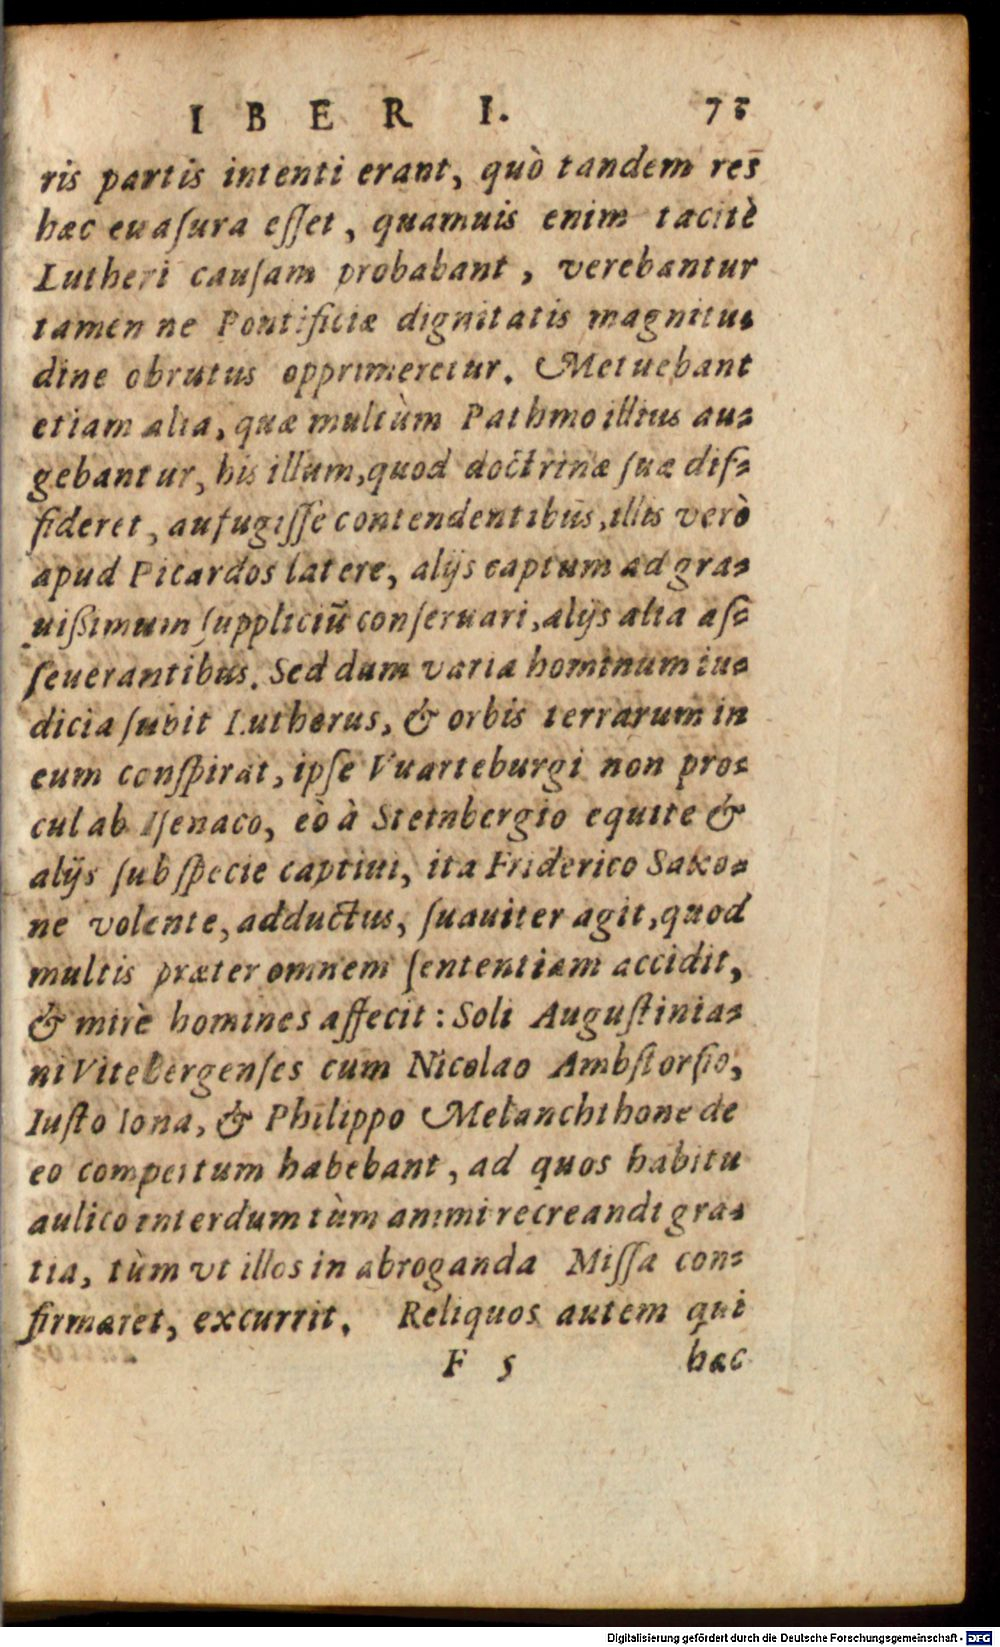 IBER I. 75
ris partis intenti erant, quò tandem res
hæc euasura esset, quamuis enim tacitè
Lutheri causam probabant, verebantur
tamen ne Pontificiæ dignitatis magnitu-
dine obrutus opprimeretur. Metuebant
etiam alia, quæ multùm Pathmo illius au-
gebantur, his illum, quod doctrinæ suæ dif-
fideret, aufugisse contendentibus, illis verò
apud Picardos latere, alijs captum ad gra-
uißimum suppliciū conseruari, alijs alia as-
seuerantibus. Sed dum varia hominum iu-
dicia subit Lutherus, & orbis terrarum in
eum conspirat, ipse Vuarteburgi non pro-
cul ab Isenaco, eò à Steinbergio equite &
alijs sub specie captiui, ita Friderico Saxo-
ne volente, adductus, suauiter agit, quod
multis præter omnem sententiam accidit,
& mirè homines affecit: Soli Augustinia-
ni Vitebergenses cum Nicolao Ambstorfio,
Iusto Iona, & Philippo Melanchthone de
eo compertum habebant, ad quos habitu
aulico interdum tùm animi recreandi gra-
tia, tùm vt illos in abroganda Missa con-
firmaret, excurrit. Reliquos autem qui
F 5 hæc
Digitalisierung gefördert durch die Deutsche Forschungsgemeinschaft - DFG